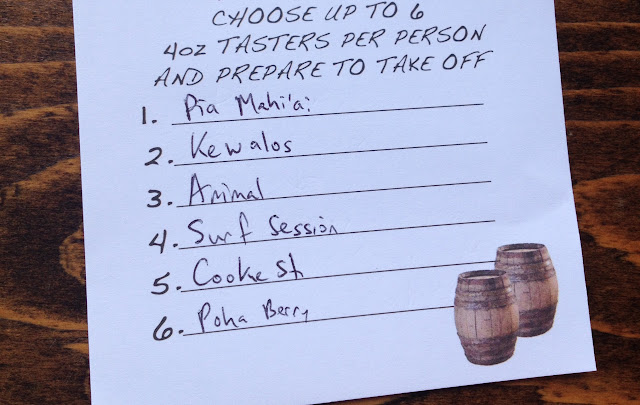 CHOOSE UP TO 6
4oz TASTERS PER PERSON
AND PREPARE TO TAKE OFF
1. Pia Mahi'ai
2. Kewalos
3. Animal
4. Surf Session
5. Cooke St
6. Poha Berry